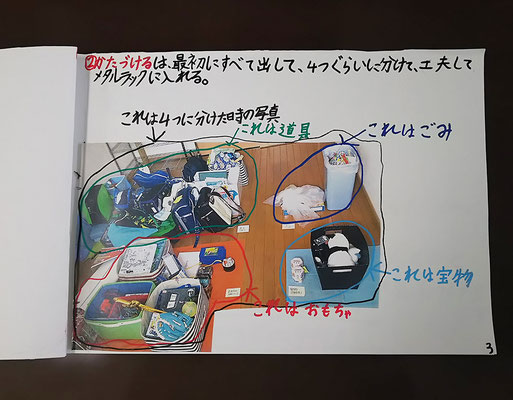 ②かたづけるは、最初にすべて出して、4つぐらいに分けて、工夫して
メタルラックに入れる。
これは4つに分けた時の写真
これは道具
これはごみ
これは宝物
これは おもちゃ
3